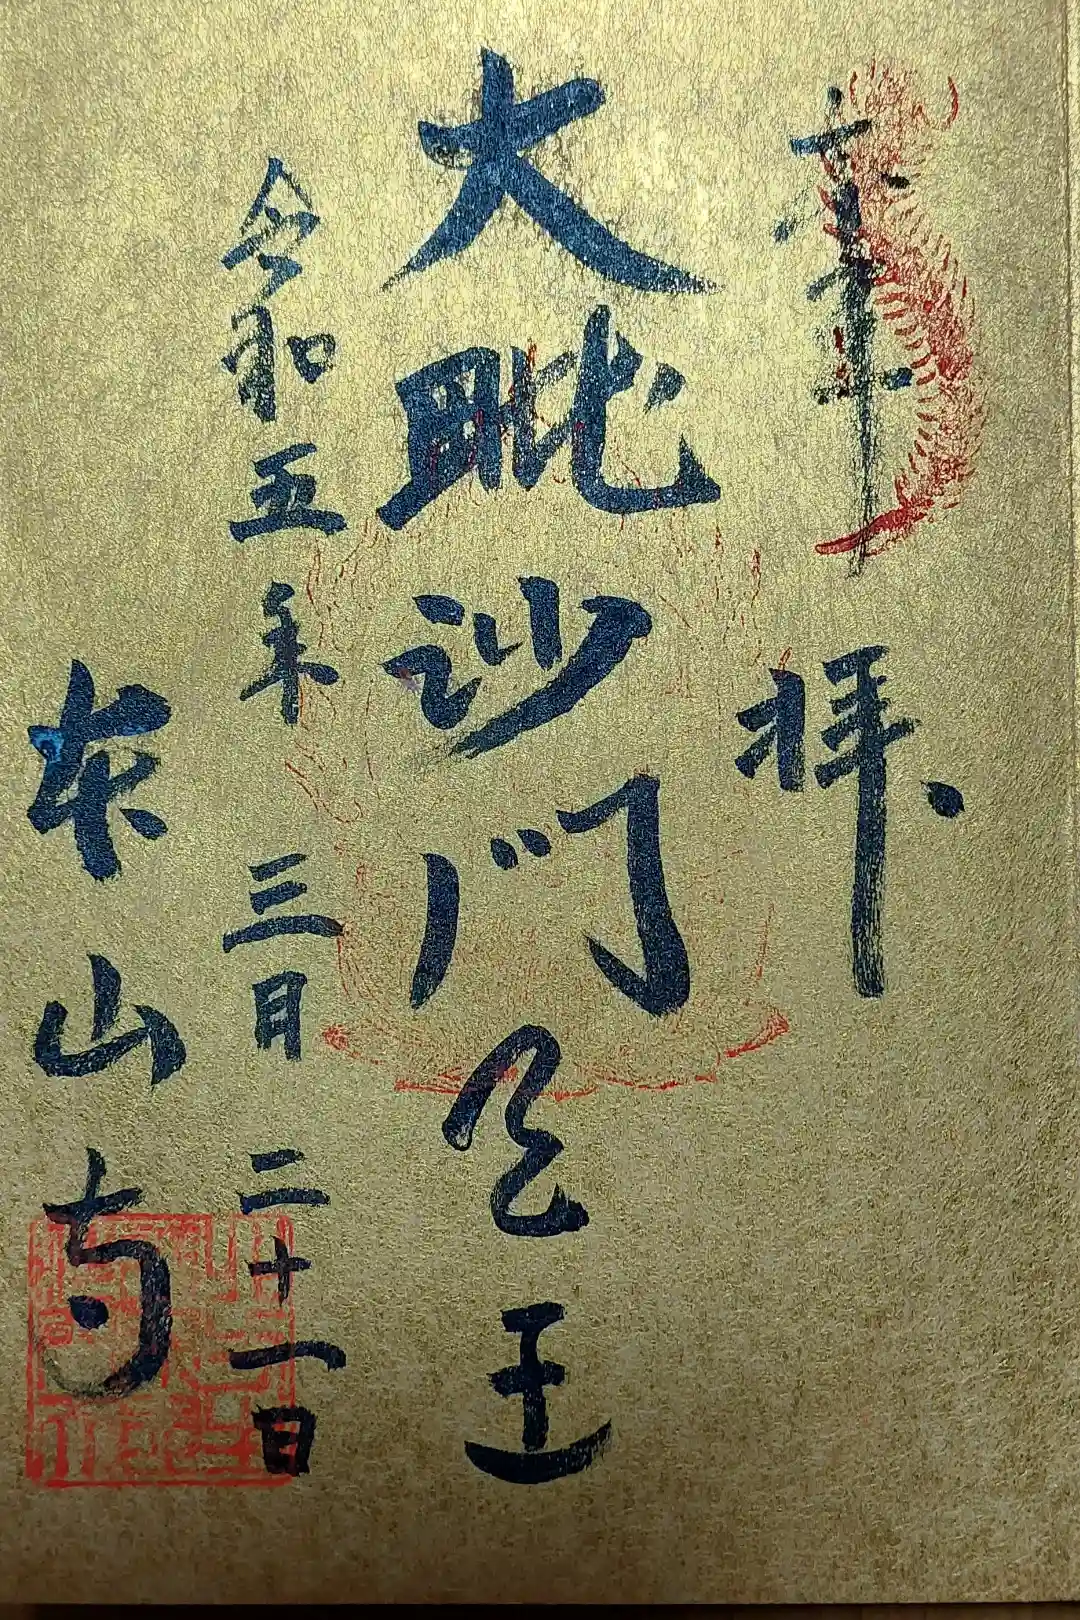 奉拝
大毗沙門天王
令和五年三月二十一日
本山寺